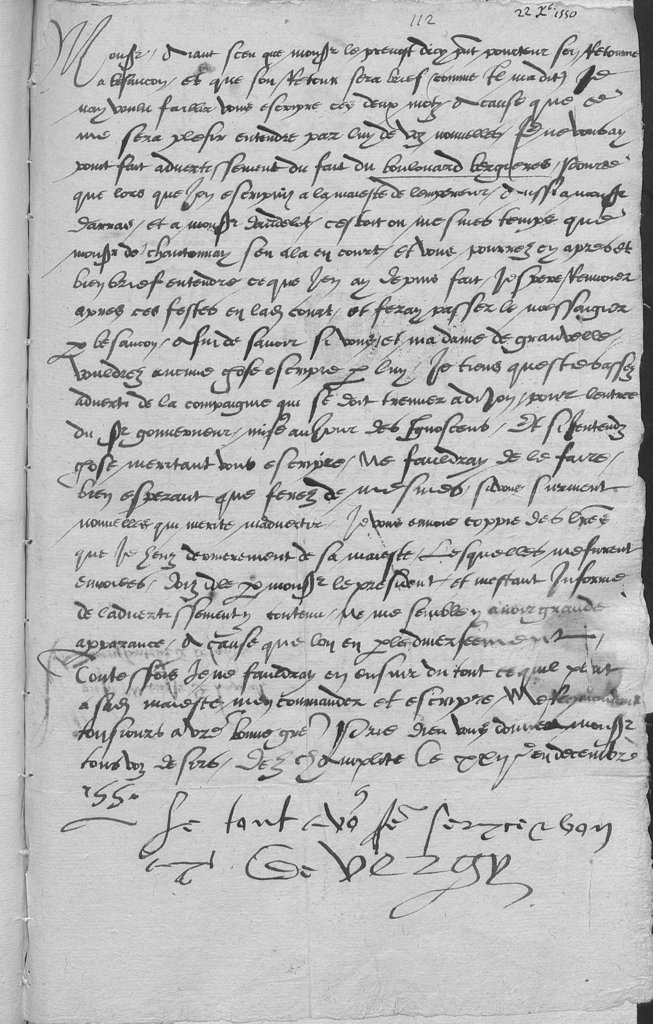 112
22 Xbre 1550
Monsr, Aiant sceu que monsr le prevost d'icy pnt pourteur s'en Retourne
a besancon, et que son Retour sera brief comme Il m'a dit, Je
n'ay voulu faillir vous escripre ces deux motz a cause que ce
me sera plesir entendre par luy de voz nouvelles, Je ne vous ay
point fait advertissement du fait du boulouard bergieres,
que lors que J'en escripviz a la maieste de lempereur, aussi a monsr
darras, et a monsr dandelot, cestoit on mesmes temps que
monsr de chantonnay s'en ala en court, et vous pourrez cy apres et
bien brief entendre ce que J'en ay depuis fait, J'espere Renvoier
apres ces festes en lad court, et feray passer le messaigier
p besancon, afin de savoir si vous et madame de granvelle
vouldrez aucune chose escripre p luy, Je tiens qu'estes assez
adverti de la compaignie qui se doit treuver a diJon, pour l'entree
du sr gouverneur, mise au Jour des Ignoscens, Et si J'entendz
chose meritant vous escripre, Ne fauldray de le faire,
bien esperant que ferez de mesmes, si vous survient
nouvelles qui merite m'advertir, Je vous envoie coppie des lres
que Je heuz derrierement de sa maieste, Lesquelles me furent
envoiees, de dole p monsr le president, et m'estant Informe
de l'advertissement y contenu, Ne me semble y avoir grande
apparance, A cause que l'on en ple diversement,
Toutesfois Je ne fauldray en ensuir du tout ce qu'il plait
a sad maieste m'en commander et escripre, Me Recommandant
tousiours a vre bonne grace, Prie dieu vous donner monsr
tous voz desirs, De ch amplite Ce xxij en decembre
1550
Le tout vre serviteur bon
amy
G de Vergy